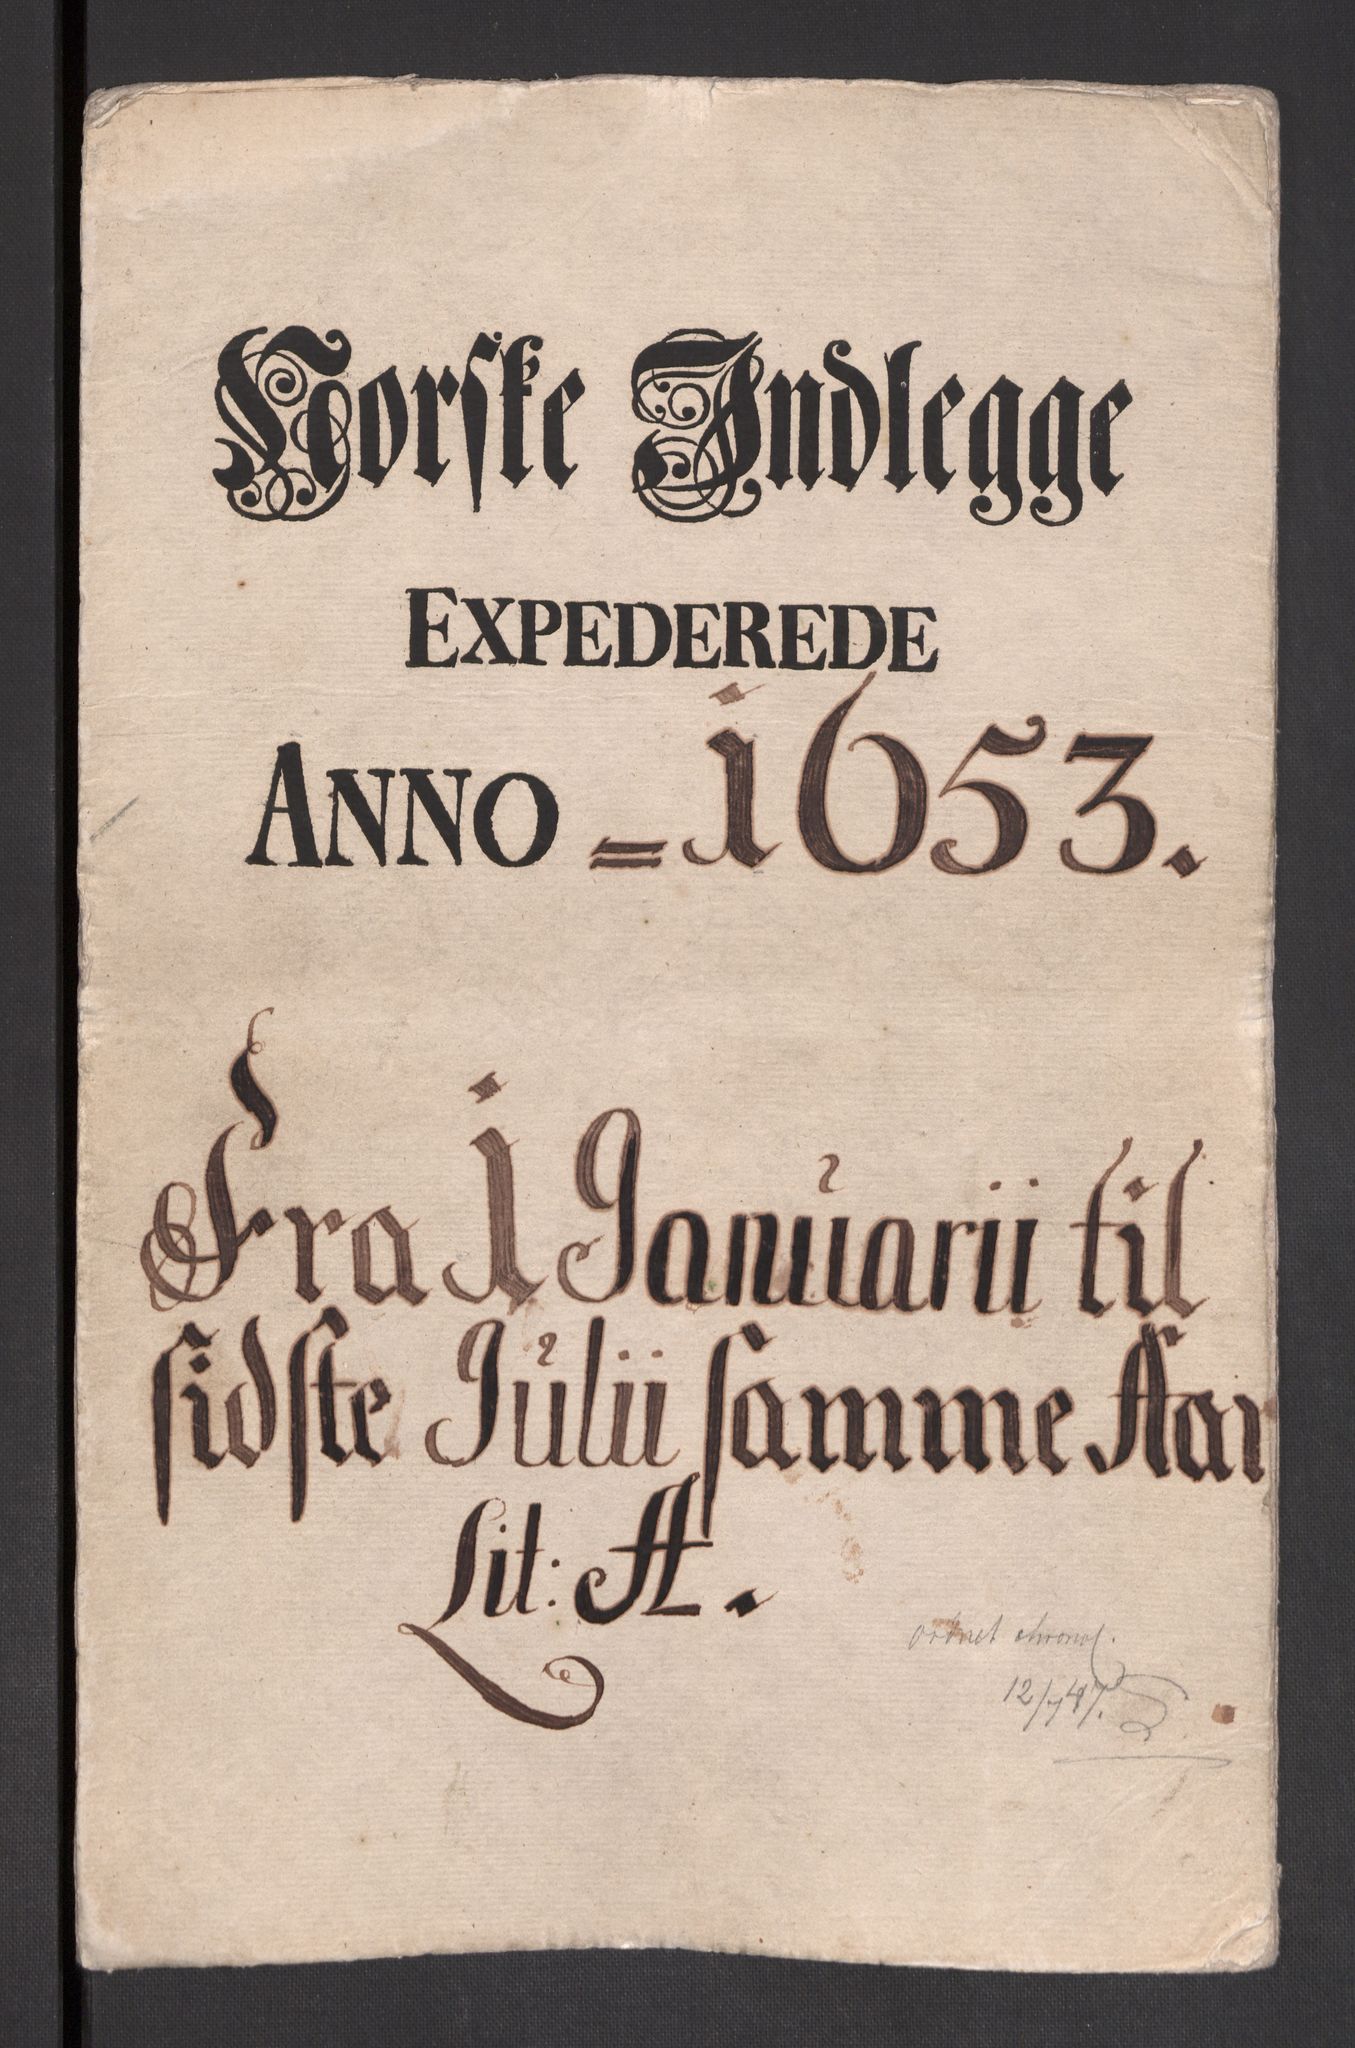 Norske Indlegge
EXPEDEREDE
ANNO = 1653.
Fra 1 Januarii til
sidste Julii samme Aar
Lit: A.
ordnet chronol.
12/7 47.